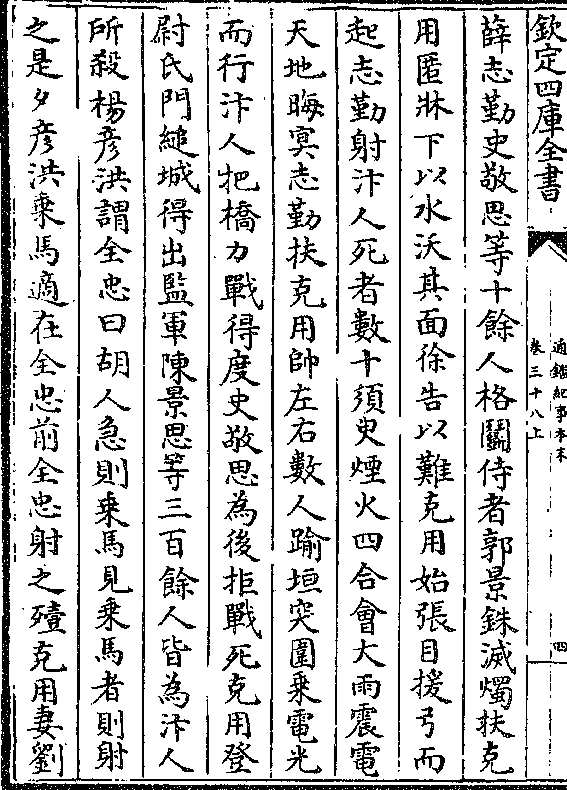 欽定四庫全書
通鑑紀事本末
卷三十八上
四
薛志勤史敬思等十餘人格鬭侍者郭景銖滅燭扶克
用匿牀下以水沃其面徐告以難克用始張目援弓而
起志勤射汴人死者數十須臾煙火四合會大雨震電
天地晦冥志勤扶克用帥左右數人踰垣突圍乗電光
而行汴人把橋力戰得度史敬思為後拒戰死克用登
尉氏門縋城得出監軍陳景思等三百餘人皆為汴人
所殺楊彦洪謂全忠曰胡人急則乗馬見乗馬者則射
之是夕彦洪乗馬適在全忠前全忠射之殪克用妻劉